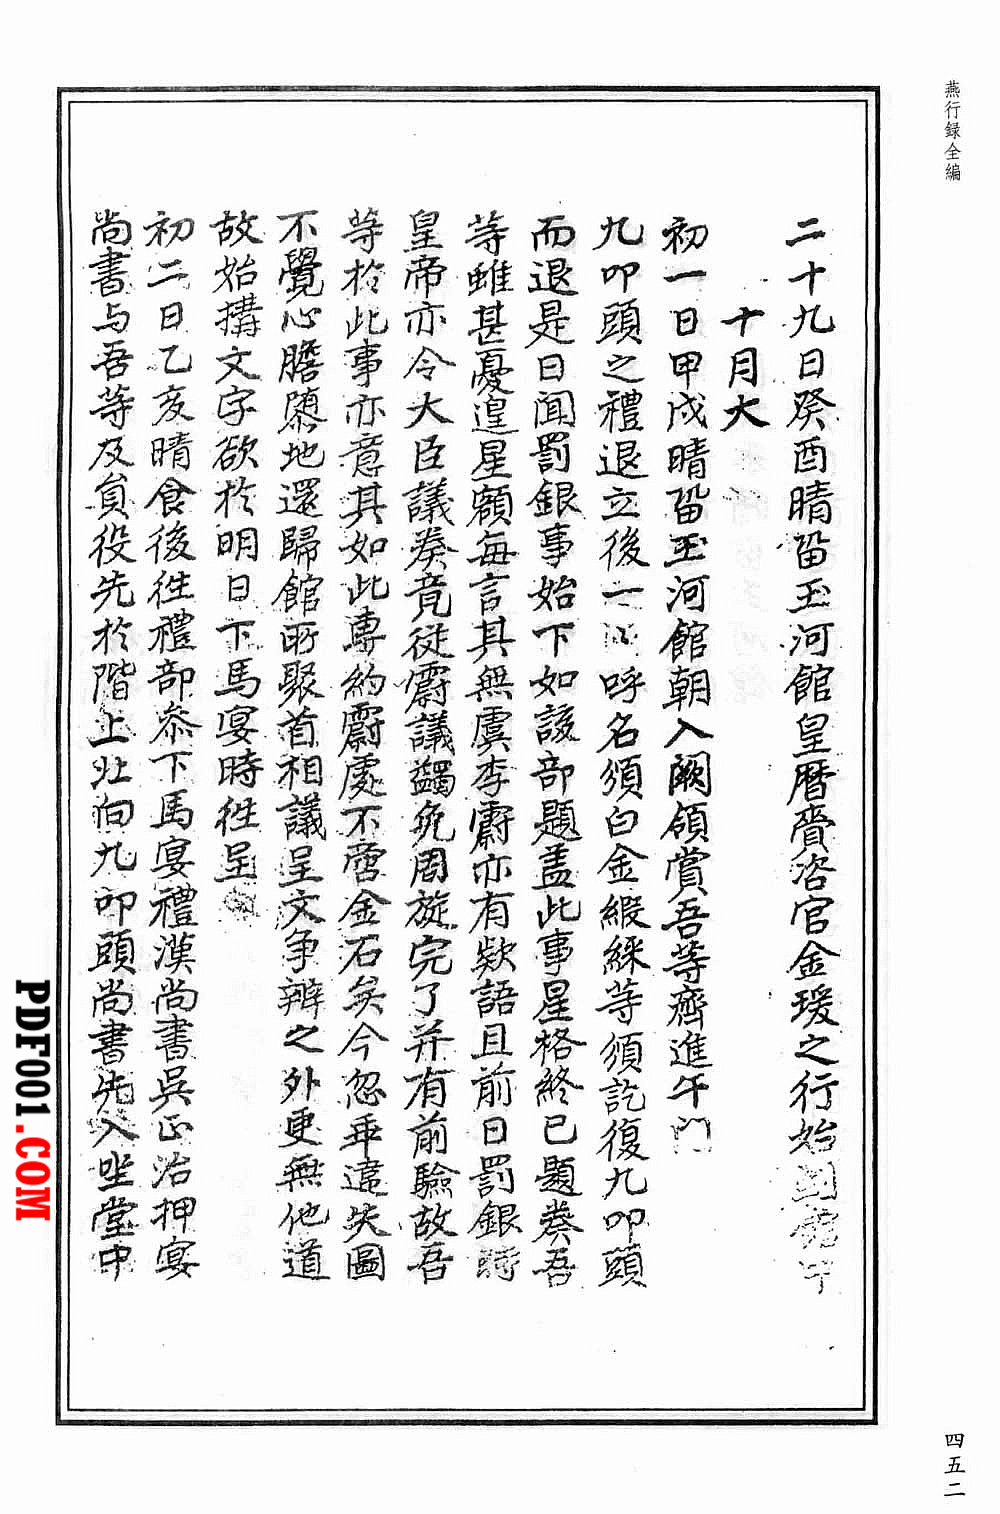 燕行録全編
二十九日癸酉晴留玉河館皇曆賫咨官金瑗之行始到館中
十月大
初一日甲戌晴留玉河館朝入闕領賞吾等齊進午門
九叩頭之禮退立後一呼名頒白金緞綵等頒訖復九叩頭
而退是日聞罰銀事始下如該部題盖此事星格終已題奏吾
等雖甚憂遑星額每言其無虞李霨亦有欵語且前日罰銀時
皇帝亦令大臣議奏竟從霨議蠲免周旋完了并有前驗故吾
等於此事亦意其如此專約霨處不啻金石矣今忽乖違失圖
不覺心膽墮地還歸館所聚首相議呈文爭辨之外更無他道
故始搆文字欲於明日下馬宴時徃呈
初二日乙亥晴食後徃禮部叅下馬宴禮漢尚書吳正治押宴
尚書与吾等及負役先於階上北向九叩頭尚書先入坐堂中
四五二
PDF001.COM